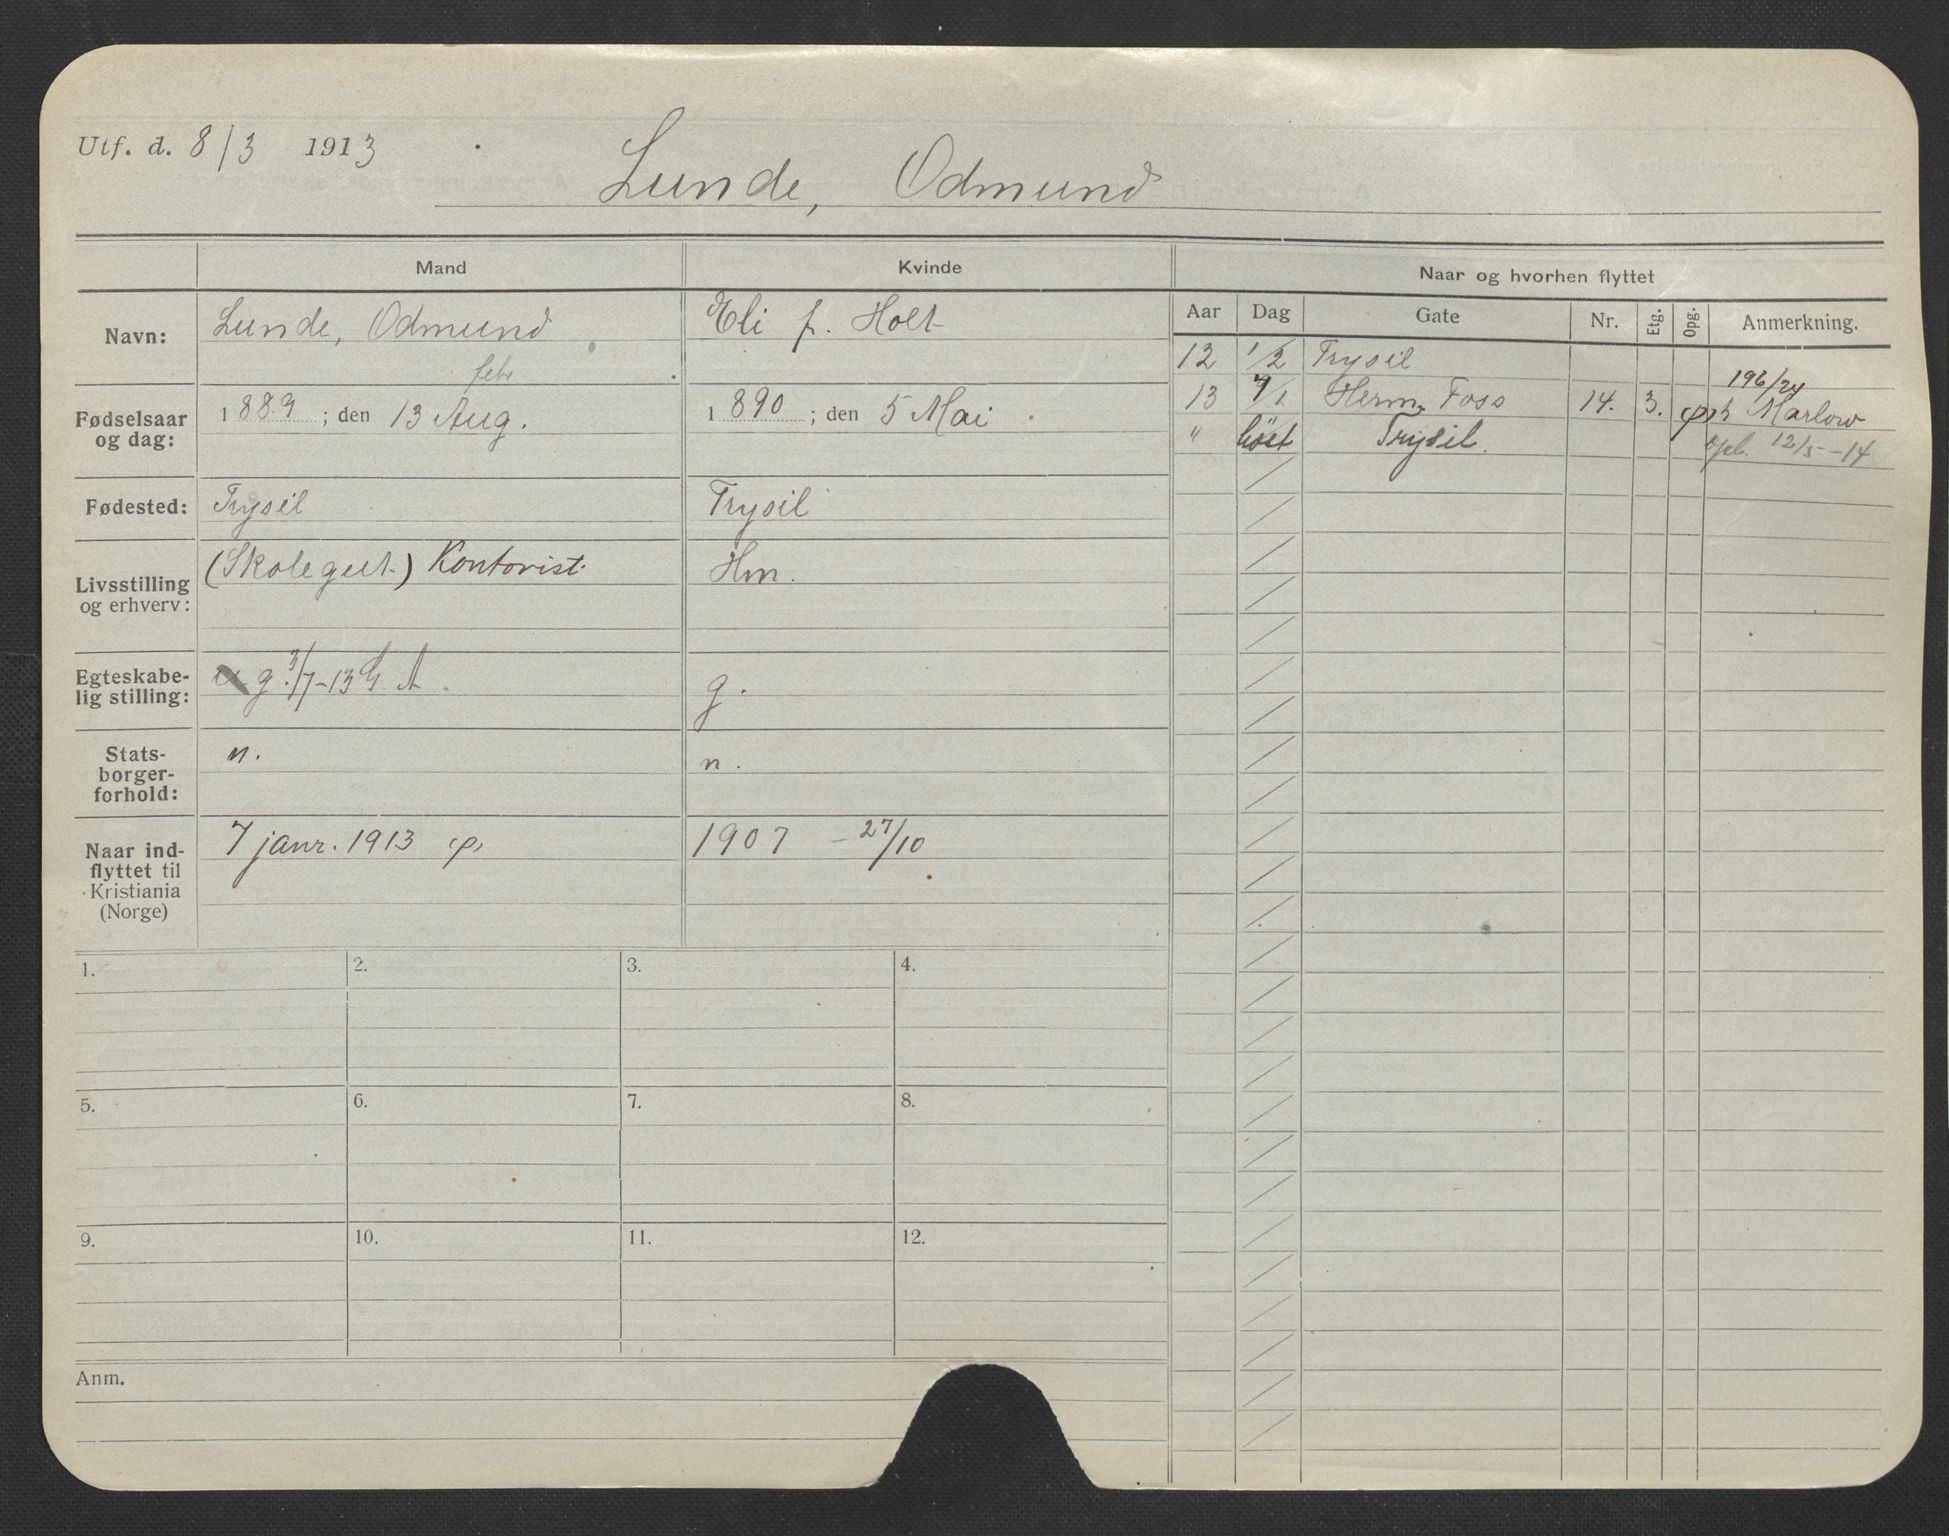 Utf. d. 8/3 1913
Lunde, Odmund
Mand
Kvinde
Naar og hvorhen flyttet
Navn:
Lunde, Odmund
Eli f. Holt
febr
Fødselsaar
og dag:
1889; den 13 Aug.
1890; den 5 Mai
Fødested:
Trysil
Trysil
Livsstilling
og erhverv:
(Skolegut.) Kontorist.
Hm.
Egteskabe-
lig stilling:
g. 3/7-13 G. A.
g.
Stats-
borger-
forhold:
n.
n.
Naar ind-
flyttet til
Kristiania
(Norge)
7 janr. 1913
1907 - 27/10
Aar Dag Gate Nr. Etg. Opg. Anmerkning.
12 1/2 Trysil
196/24
13 7/1 Herm. Foss 14. 3. Marlow
" höst Trysil. opb. 12/5-14
1. 2. 3. 4.
5. 6. 7. 8.
9. 10. 11. 12.
Anm.